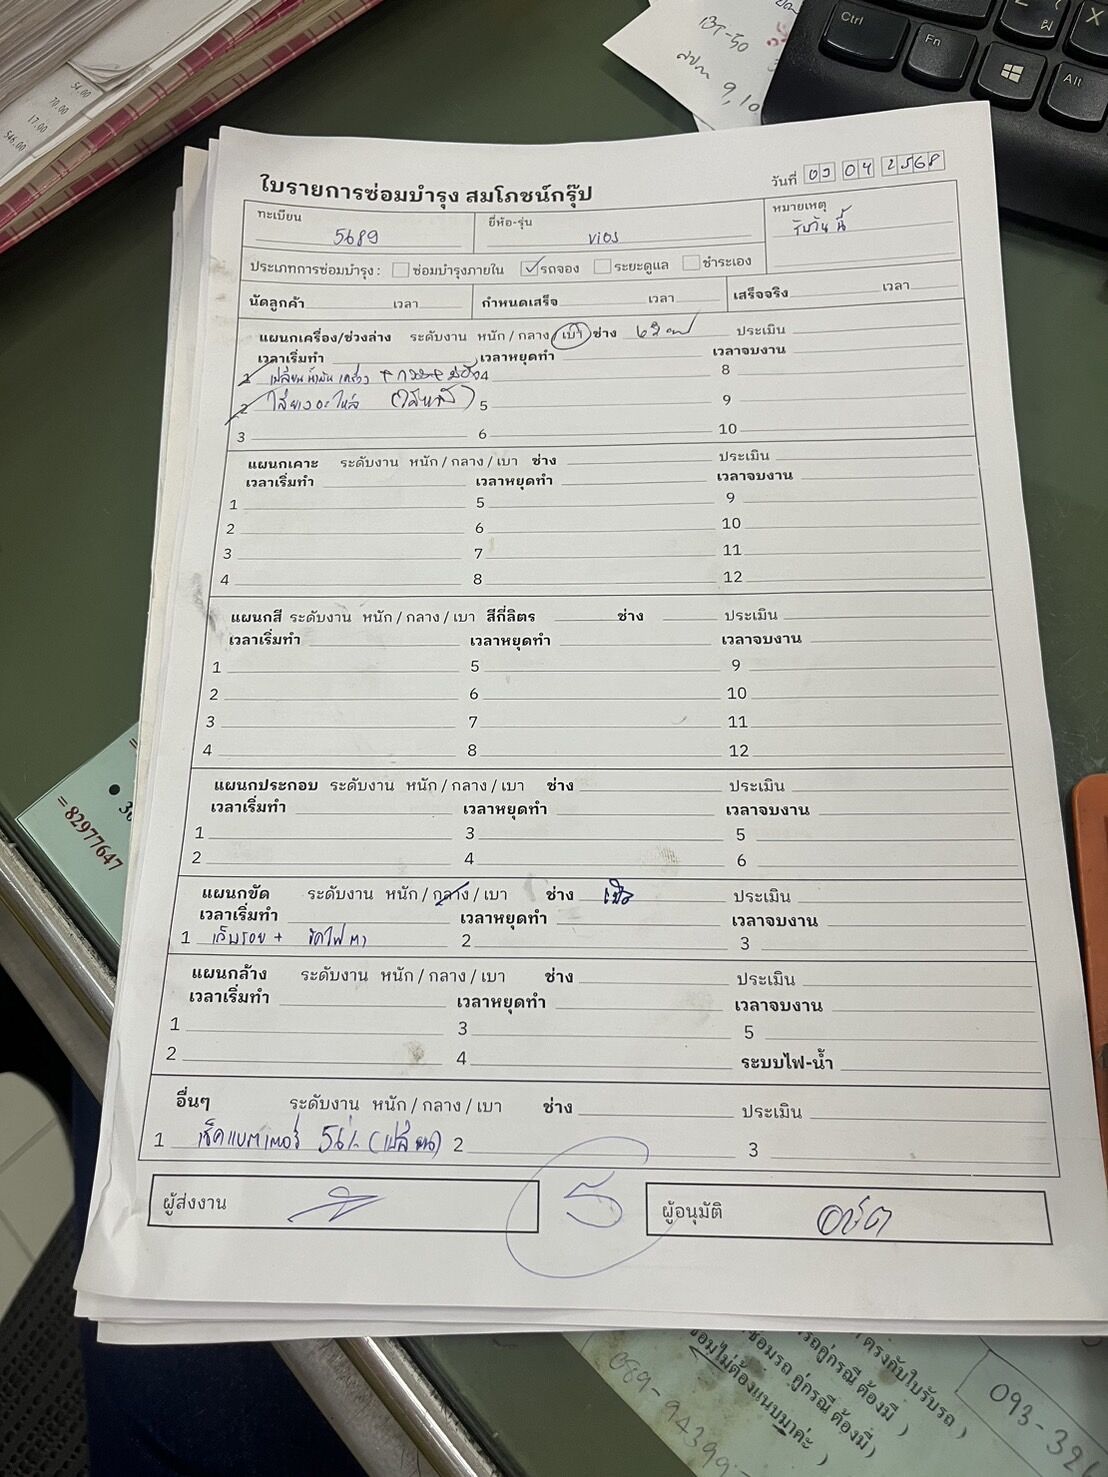 54.00
70.00
17.00
546.00
BT-50
9,10
Ctrl
Fn
Alt
X
ใบรายการซ่อมบำรุง สมโภชน์กรุ๊ป
วันที่ 03 04 2568
ทะเบียน 5689 ยี่ห้อ-รุ่น vios หมายเหตุ
รับวันนี้
ประเภทการซ่อมบำรุง : ซ่อมบำรุงภายใน ✓ รถจอง ระยะดูแล ชำระเอง
นัดลูกค้า เวลา กำหนดเสร็จ เวลา เสร็จจริง เวลา
แผนกเครื่อง/ช่วงล่าง ระดับงาน หนัก / กลาง / เบา ช่าง ประเมิน
เวลาเริ่มทำ เวลาหยุดทำ เวลาจบงาน
1 เปลี่ยนน้ำมันเครื่อง + 4 8
2 ใส่ยางอะไหล่ 5 9
3 6 10
แผนกเคาะ ระดับงาน หนัก / กลาง / เบา ช่าง ประเมิน
เวลาเริ่มทำ เวลาหยุดทำ เวลาจบงาน
1 5 9
2 6 10
3 7 11
4 8 12
แผนกสี ระดับงาน หนัก / กลาง / เบา สีกี่ลิตร ช่าง ประเมิน
เวลาเริ่มทำ เวลาหยุดทำ เวลาจบงาน
1 5 9
2 6 10
3 7 11
4 8 12
แผนกประกอบ ระดับงาน หนัก / กลาง / เบา ช่าง ประเมิน
เวลาเริ่มทำ เวลาหยุดทำ เวลาจบงาน
1 3 5
2 4 6
แผนกขัด ระดับงาน หนัก / กลาง / เบา ช่าง ประเมิน
เวลาเริ่มทำ เวลาหยุดทำ เวลาจบงาน
1 เก็บรอย + ขัดไฟตา 2 3
แผนกล้าง ระดับงาน หนัก / กลาง / เบา ช่าง ประเมิน
เวลาเริ่มทำ เวลาหยุดทำ เวลาจบงาน
1 3 5
2 4 ระบบไฟ-น้ำ
อื่นๆ ระดับงาน หนัก / กลาง / เบา ช่าง ประเมิน
1 เช็คแบตเตอรี่ 56% (เปลี่ยน) 2 3
ผู้ส่งงาน 5 ผู้อนุมัติ
= 82977647
ตรงกับใบรับรถ )
รถคู่กรณี ต้องมี )
ซ่อมรถ คู่กรณี ต้องมี )
ซ่อมไม่ต้องแนบมาค่ะ )
089-
94399
093-32